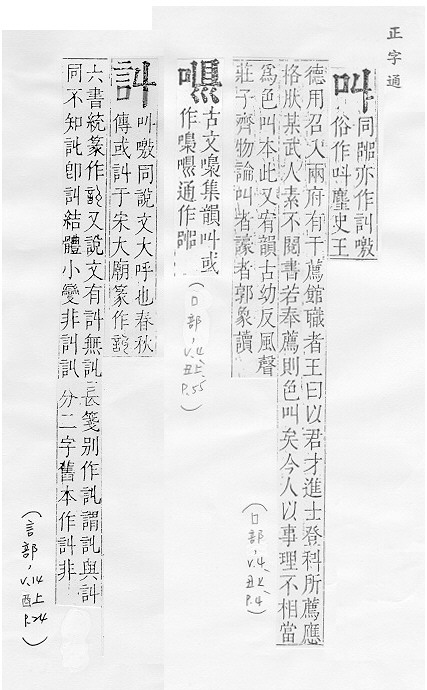 正字通
叫
同嘂亦作訆噭
俗作呌麈史王
德用召入兩府有干薦館職者王曰以君才進士登科所薦應
格肰某武人素不閱書若奉薦則色叫矣今人以事理不相當
爲色叫本此又宥韻古幼反風聲
莊子齊物論叫者譹者郭象讀
(口部, V.4, 丑上, P.4)
古文嘄集韻叫或
作嘄通作嘂
(口部, V.4, 丑上, P.55)
訆
叫噭同說文大呼也春秋
傳或訆于宋大廟篆作
六書統篆作又說文有訆無訠長箋別作訠謂訠與訆
同不知訠卽訆結體小變非訆訠分二字舊本作訆非
(言部, V.14 酉上 P.24)